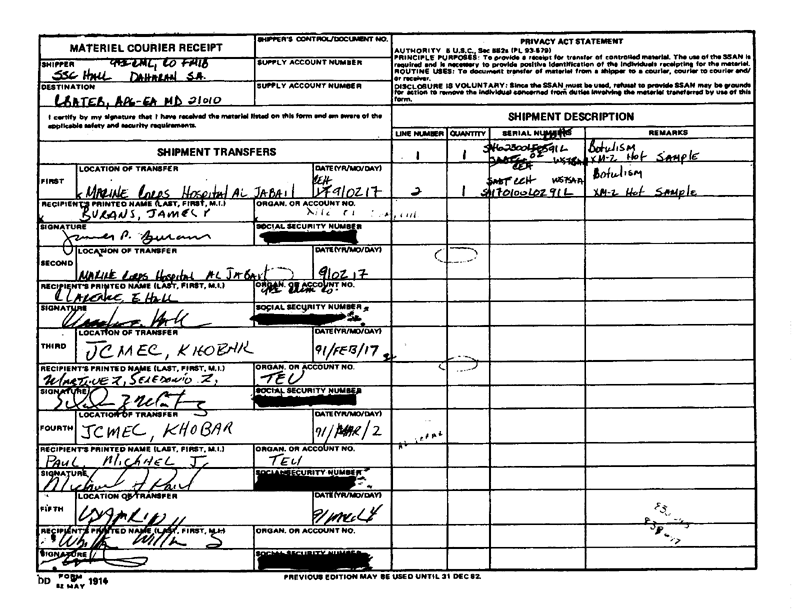 MATERIEL COURIER RECEIPT
SHIPPER'S CONTROL/DOCUMENT NO.
PRIVACY ACT STATEMENT
AUTHORITY 5 U.S.C., Sec 552a (PL 93-579)
PRINCIPLE PURPOSES: To provide a receipt for transfer of controlled material. The use of the SSAN is
required and is necessary to provide positive identification of the individuals receipting for the material.
ROUTINE USES: To document transfer of material from a shipper to a courier, courier to courier and/
or receiver.
DISCLOSURE IS VOLUNTARY: Since the SSAN must be used, refusal to provide SSAN may be grounds
for action to remove the individual concerned from duties involving the material transferred by use of this
form.
SHIPPER
SSG HALL DAHARAN SA.
SUPPLY ACCOUNT NUMBER
DESTINATION
APG-EA MD 21010
SUPPLY ACCOUNT NUMBER
I certify by my signature that I have received the material listed on this form and am aware of the
applicable safety and security requirements.
SHIPMENT DESCRIPTION
LINE NUMBER QUANTITY SERIAL NUMBER REMARKS
SHIPMENT TRANSFERS
1 1 Botulism
XM-2 Hot SAMPLE
2 1 Botulism
XM-2 Hot SAMPle
FIRST
LOCATION OF TRANSFER
MARINE CORPS HOSPITAL AL JABAIL
DATE (YR/MO/DAY)
910217
RECIPIENT'S PRINTED NAME (LAST, FIRST, M.I.)
BURANS, JAMES
ORGAN. OR ACCOUNT NO.
SIGNATURE
James P. Burans
SOCIAL SECURITY NUMBER
SECOND
LOCATION OF TRANSFER
MARINE CORPS HOSPITAL AL JABAIL
DATE (YR/MO/DAY)
910217
RECIPIENT'S PRINTED NAME (LAST, FIRST, M.I.)
CLARENCE, E HALL
ORGAN. OR ACCOUNT NO.
SIGNATURE
SOCIAL SECURITY NUMBER
THIRD
LOCATION OF TRANSFER
JCMEC, KHOBAR
DATE (YR/MO/DAY)
91/FEB/17
RECIPIENT'S PRINTED NAME (LAST, FIRST, M.I.)
MARTINEZ, SELEDONIO Z,
ORGAN. OR ACCOUNT NO.
TEU
SIGNATURE
SOCIAL SECURITY NUMBER
FOURTH
LOCATION OF TRANSFER
JCMEC, KHOBAR
DATE (YR/MO/DAY)
91/MAR/2
RECIPIENT'S PRINTED NAME (LAST, FIRST, M.I.)
PAUL, MICHAEL J,
ORGAN. OR ACCOUNT NO.
TEU
SIGNATURE
Michael J Paul
SOCIAL SECURITY NUMBER
FIFTH
LOCATION OF TRANSFER
DATE (YR/MO/DAY)
RECIPIENT'S PRINTED NAME (LAST, FIRST, M.I.)
ORGAN. OR ACCOUNT NO.
SIGNATURE
SOCIAL SECURITY NUMBER
DD FORM 1914
82 MAY
PREVIOUS EDITION MAY BE USED UNTIL 31 DEC 82.